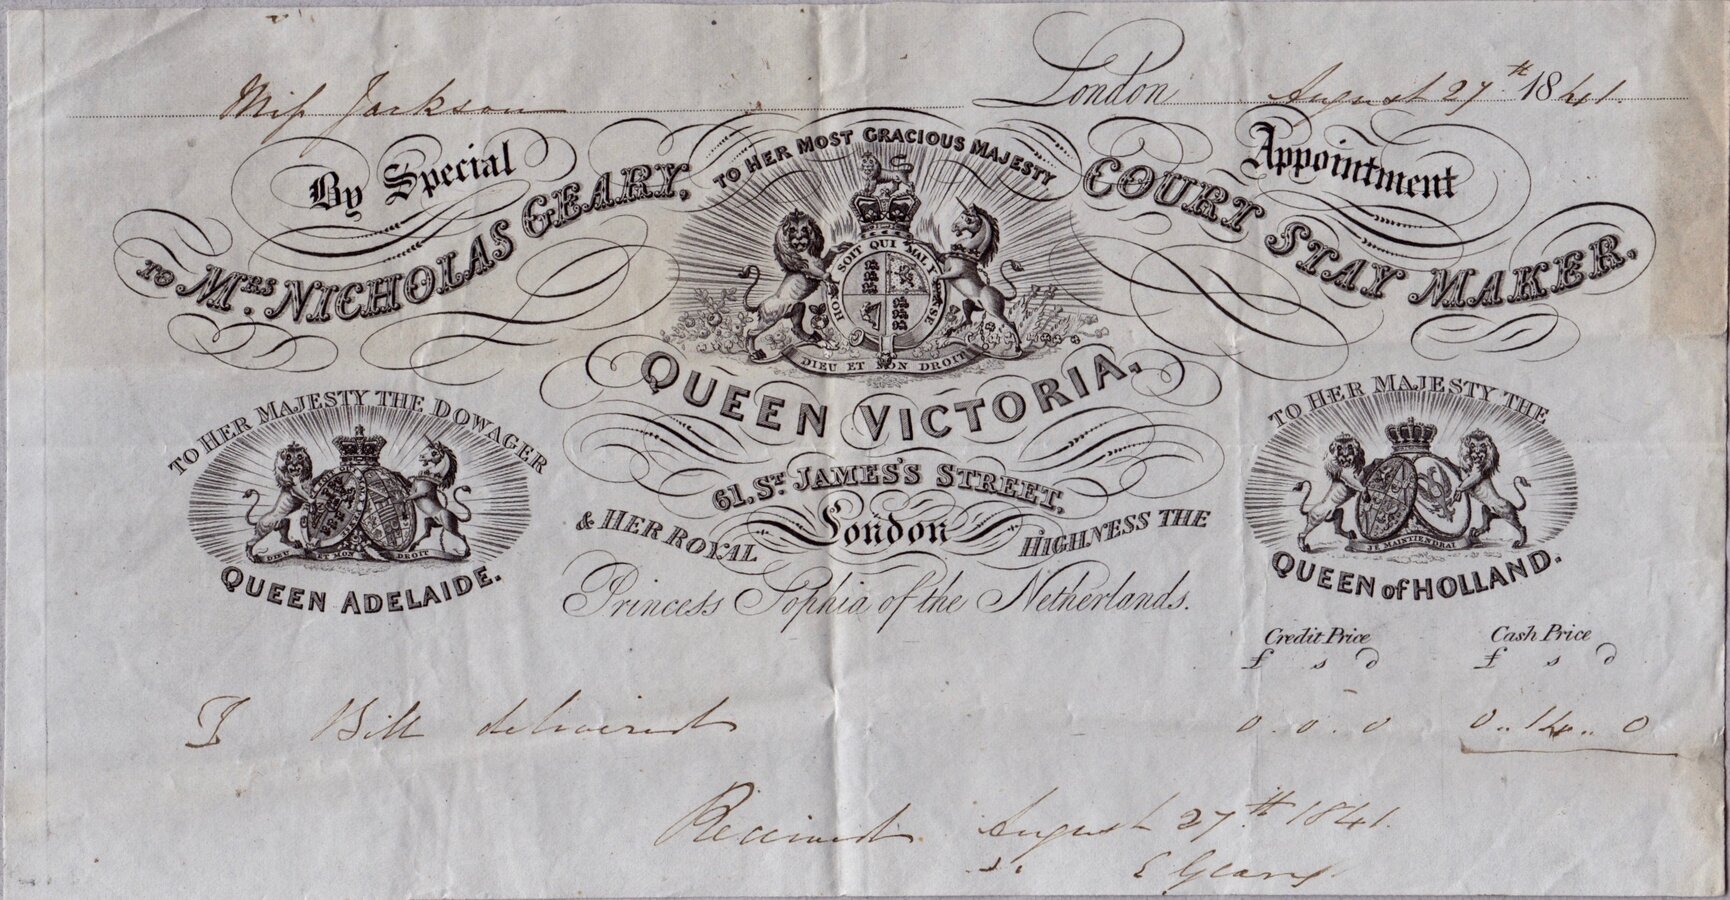 Miss Jackson London August 27th 1841.
By Special Appointment
TO HER MOST GRACIOUS MAJESTY
TO MRS. NICHOLAS GEARY, COURT STAY MAKER.
HONI SOIT QUI MAL Y PENSE
DIEU ET MON DROIT
QUEEN VICTORIA.
TO HER MAJESTY THE DOWAGER
DIEU ET MON DROIT
QUEEN ADELAIDE.
61, ST JAMES'S STREET,
London
& HER ROYAL HIGHNESS THE
Princess Sophia of the Netherlands.
TO HER MAJESTY THE
JE MAINTIENDRAI
QUEEN of HOLLAND.
Credit Price Cash Price
£ s d £ s d
Bill delivered 0 . 0 . 0 0 .. 14 .. 0
Received August 27th 1841.
E Geary